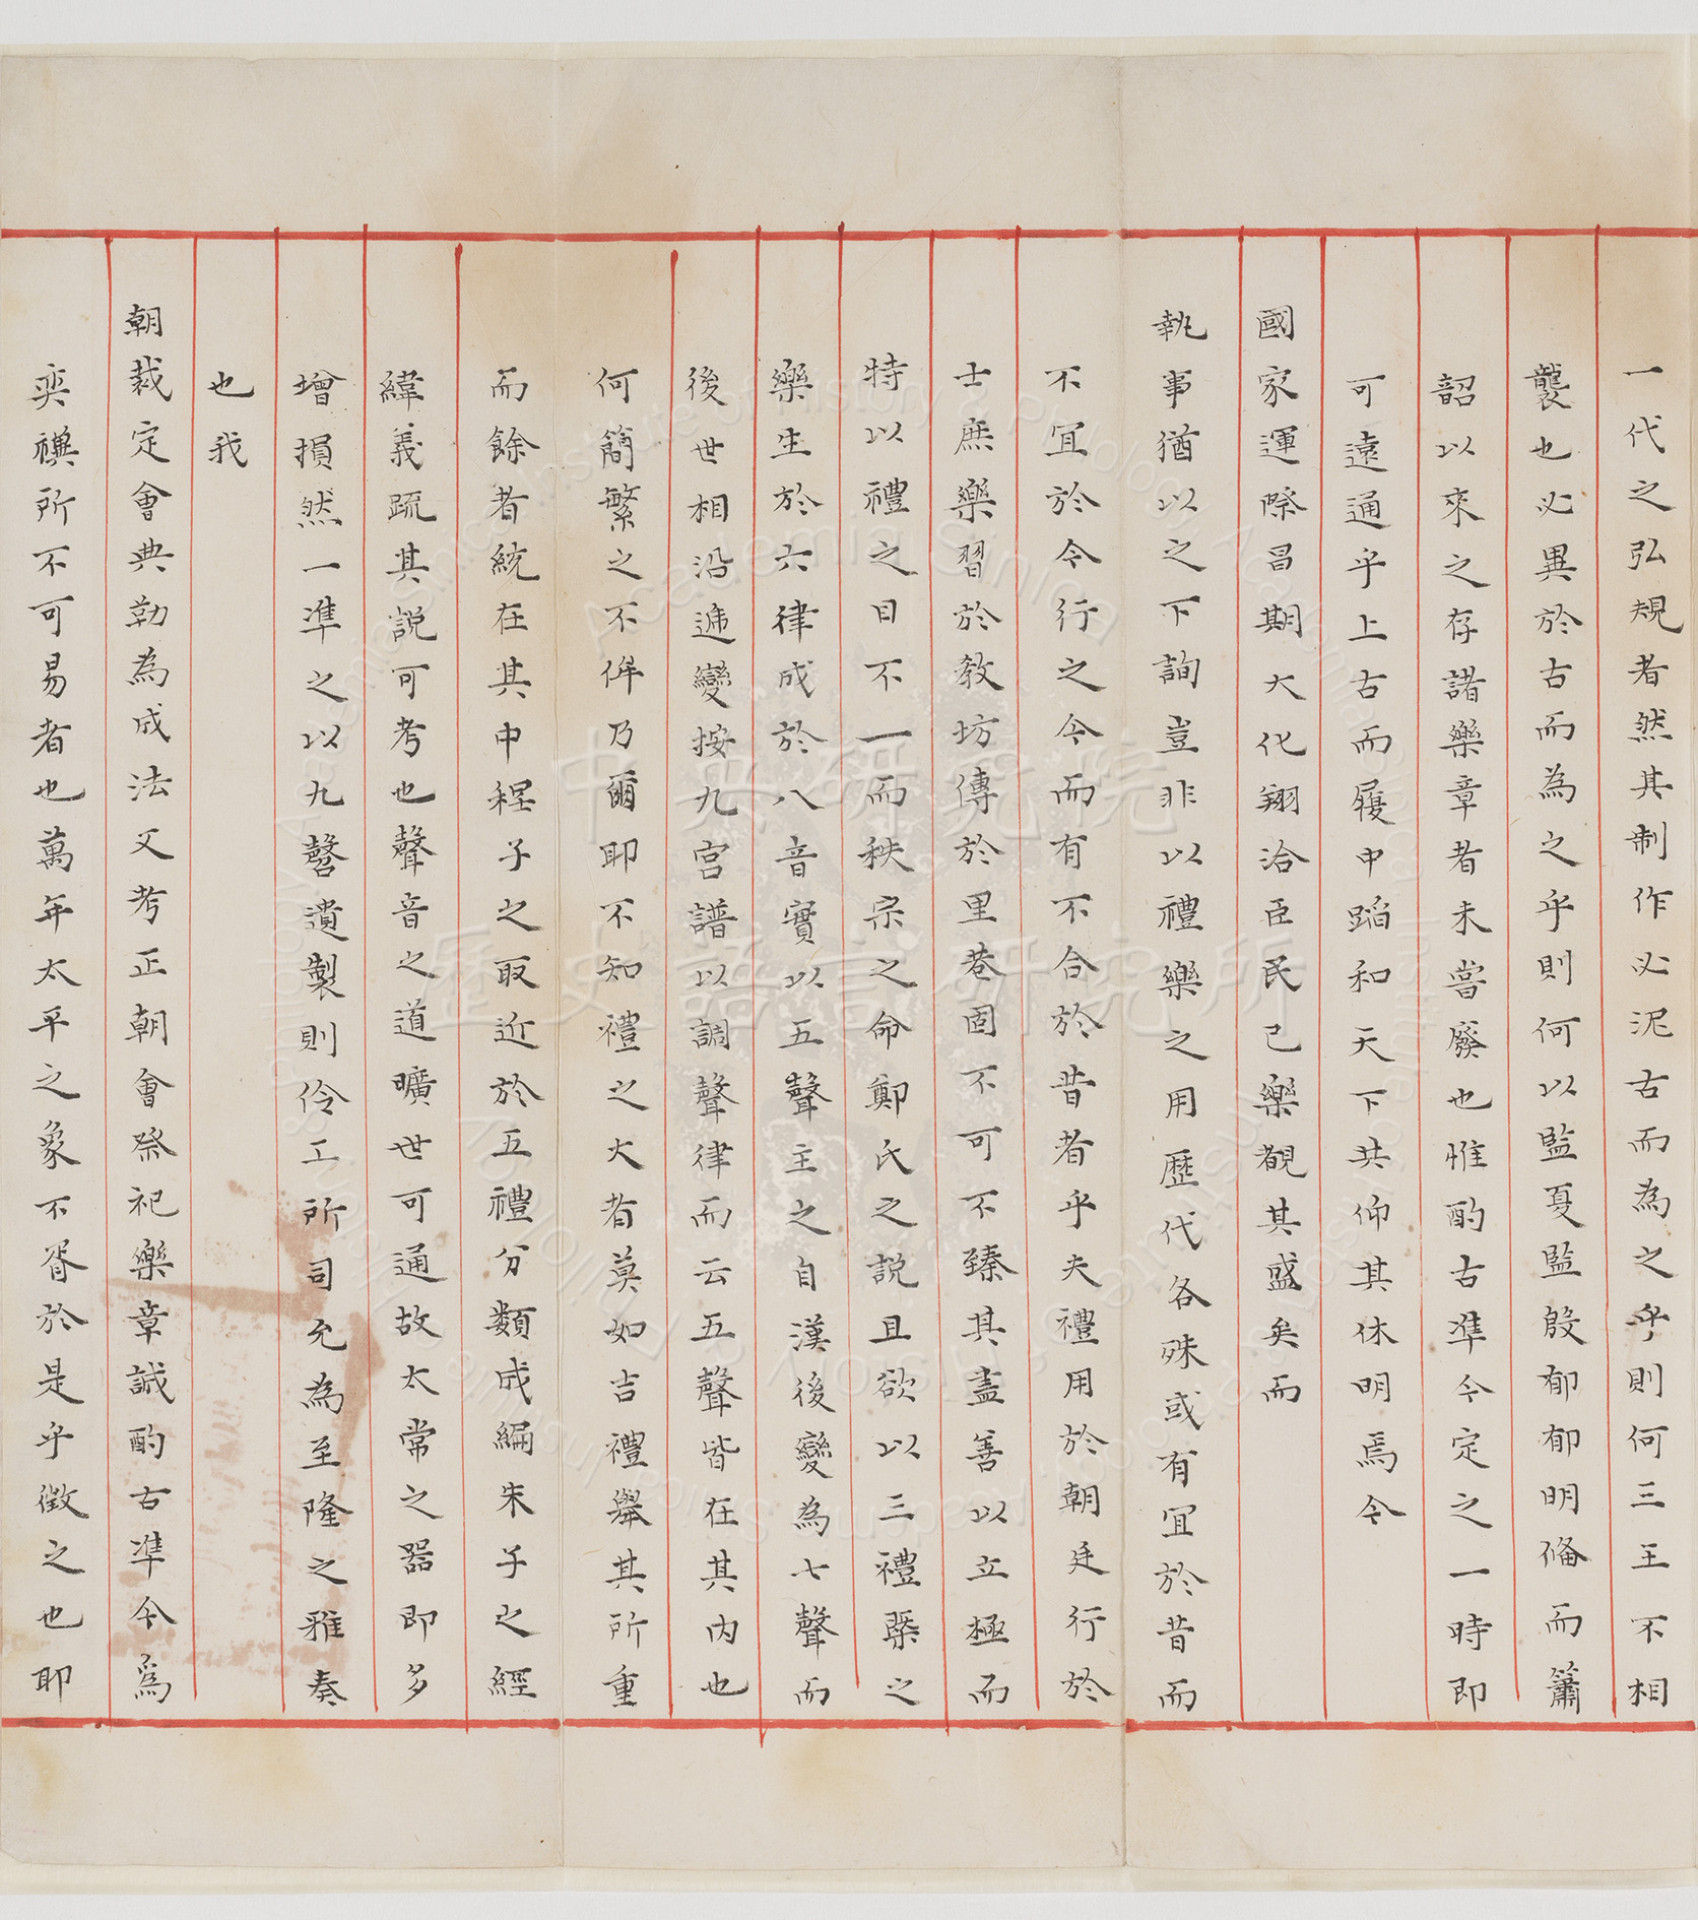 一代之弘規者然其制作必泥古而為之乎則何三王不相
襲也必異於古而為之乎則何以監夏監殷郁郁明俻而簫
韶以來之存諸樂章者未嘗廢也惟酌古準今定之一時即
可遠通乎上古而履中蹈和天下共仰其休明焉今
國家運際昌期大化翔洽臣民已樂覩其盛矣而
執事猶以之下詢豈非以禮樂之用歷代各殊或有宜於昔而
不宜於今行之今而有不合於昔者乎夫禮用於朝廷行於
士庶樂習於教坊傳於里巷固不可不臻其盡善以立極而
特以禮之目不一而秩宗之命鄭氏之説且欲以三禮槩之
樂生於六律成於八音實以五聲主之自漢後變為七聲而
後世相沿遞變按九宮譜以調聲律而云五聲皆在其内也
何簡繁之不侔乃爾耶不知禮之大者莫如吉禮舉其所重
而餘者統在其中程子之取近於五禮分類成編朱子之經
緯義疏其説可考也聲音之道曠世可通故太常之器即多
增損然一準之以九磬遺製則伶工所司允為至隆之雅奏
也我
朝裁定會典勒為成法又考正朝會祭祀樂章誠酌古準今為
奕禩所不可易者也萬年太平之象不胥於是乎徵之也耶
中央研究院
歷史語言研究所